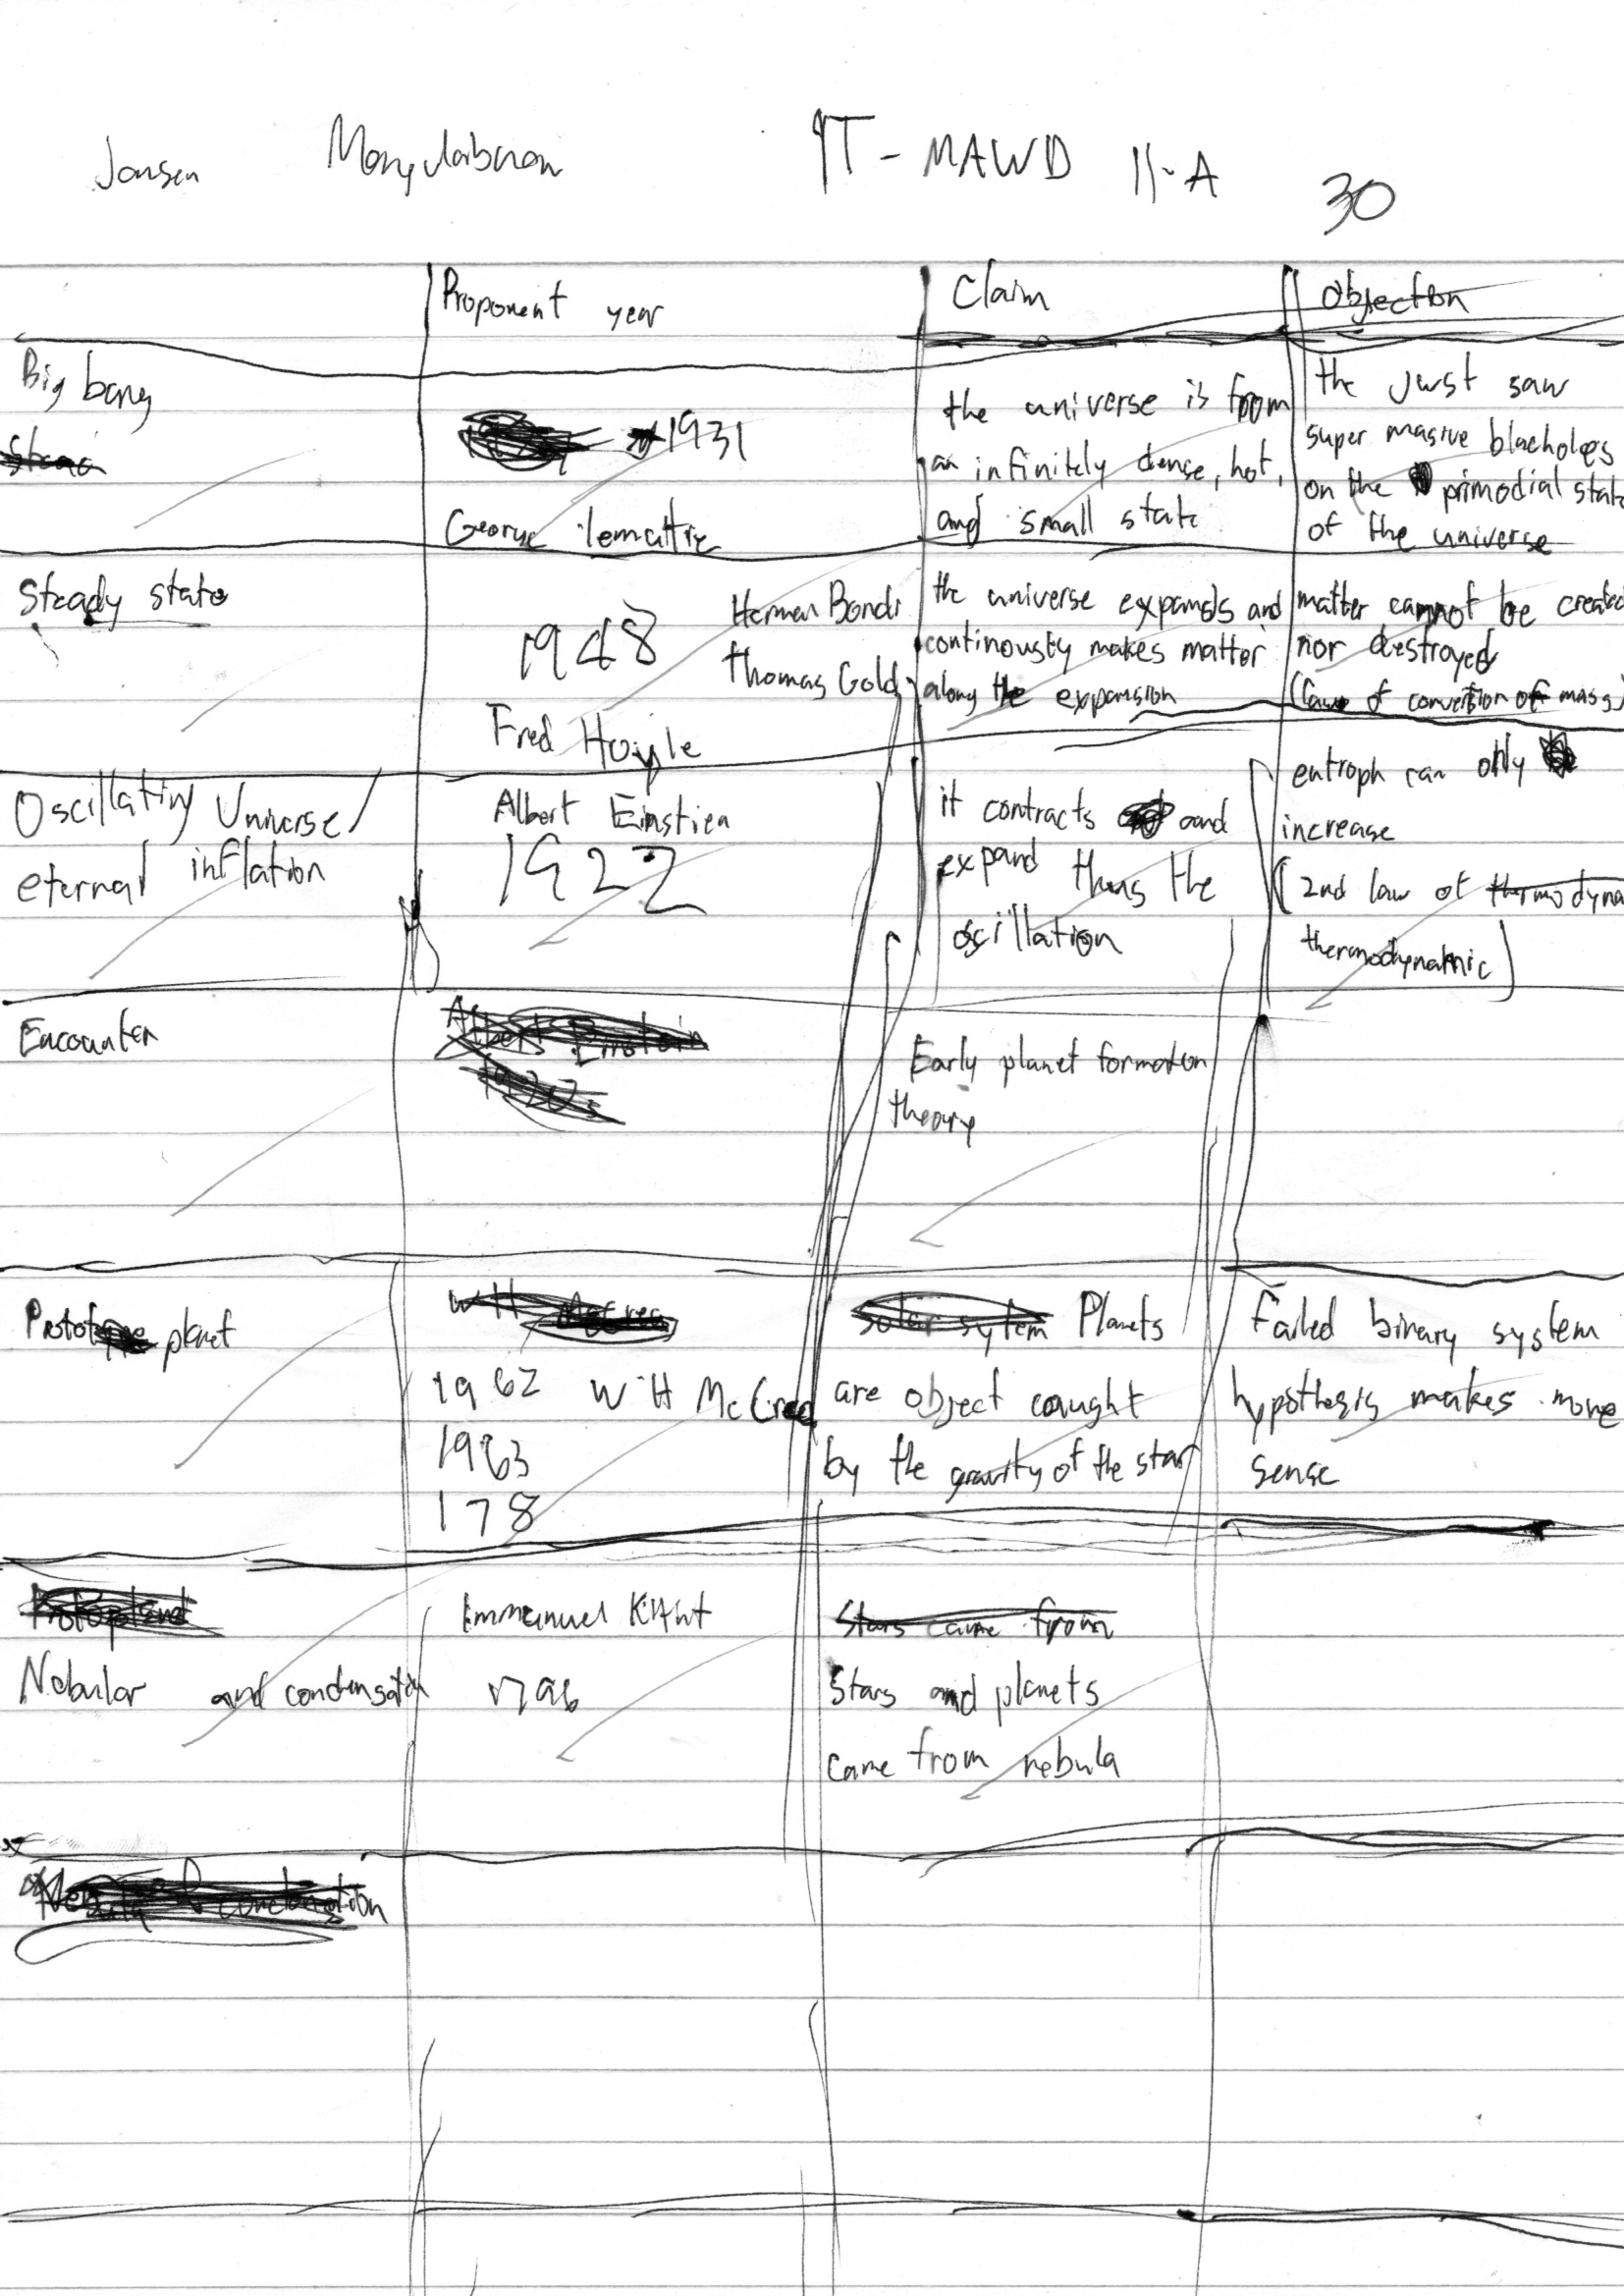 Jansen
IT - MAWD 11-A
30
Proponent year
Claim
Objection
Big bang
1931
George lemattre
the universe is from
an infinitely dence, hot,
and small state
the Jwst saw
super masive blackholes
on the primodial stat
of the universe
Steady state
1948
Herman Bondi
thomas Gold
Fred Hoyle
the universe expands and
continously makes matter
along the expansion
matter cannot be created
nor destroyed
of mass)
Oscillating Universe/
eternal inflation
Albert Einstien
1922
it contracts and
expand thus the
oscillation
entroph can only
increase
(2nd law of thermodyna
thermodynamic)
Encounter
Albert Einstein
1920s
Early planet formation
theory
planet
WH McCrea
1962 WH McCrea
1963
178
solar sytem Planets
are object caught
by the gravity of the star
Failed binary system
hypothesis makes more
sense
Protoplanet
Nebular and condensation
Immanuel KANt
Stars came from
Stars and planets
came from nebula